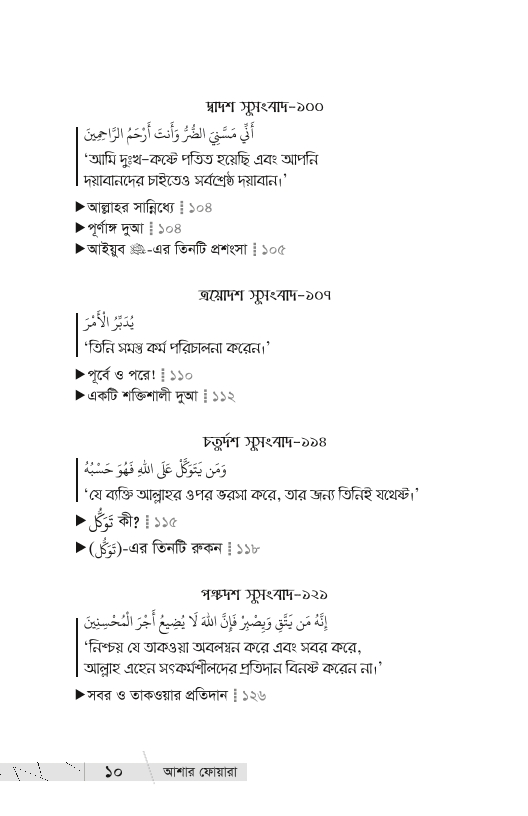 দ্বাদশ সুসংবাদ-১০০
أَنِّي مَسَّنِيَ الضُّرُّ وَأَنتَ أَرْحَمُ الرَّاحِمِينَ
‘আমি দুঃখ-কষ্টে পতিত হয়েছি এবং আপনি
দয়াবানদের চাইতেও সর্বশ্রেষ্ঠ দয়াবান।’
▶আল্লাহর সান্নিধ্যে ⁞ ১০৪
▶পূর্ণাঙ্গ দুআ ⁞ ১০৪
▶আইয়ুব -এর তিনটি প্রশংসা ⁞ ১০৫
ত্রয়োদশ সুসংবাদ-১০৭
يُدَبِّرُ الْأَمْرَ
‘তিনি সমস্ত কর্ম পরিচালনা করেন।’
▶পূর্বে ও পরে! ⁞ ১১০
▶একটি শক্তিশালী দুআ ⁞ ১১২
চতুর্দশ সুসংবাদ-১১৪
وَمَن يَتَوَكَّلْ عَلَى اللهِ فَهُوَ حَسْبُهُ
‘যে ব্যক্তি আল্লাহর ওপর ভরসা করে, তার জন্য তিনিই যথেষ্ট।’
▶تَوَكُّل কী? ⁞ ১১৫
▶(تَوَكُّل)-এর তিনটি রুকন ⁞ ১১৮
পঞ্চদশ সুসংবাদ-১২১
إِنَّهُ مَن يَتَّقِ وَيِصْبِرْ فَإِنَّ اللهَ لَا يُضِيعُ أَجْرَ الْمُحْسِنِينَ
‘নিশ্চয় যে তাকওয়া অবলম্বন করে এবং সবর করে,
আল্লাহ এহেন সৎকর্মশীলদের প্রতিদান বিনষ্ট করেন না।’
▶সবর ও তাকওয়ার প্রতিদান ⁞ ১২৬
১০ আশার ফোয়ারা